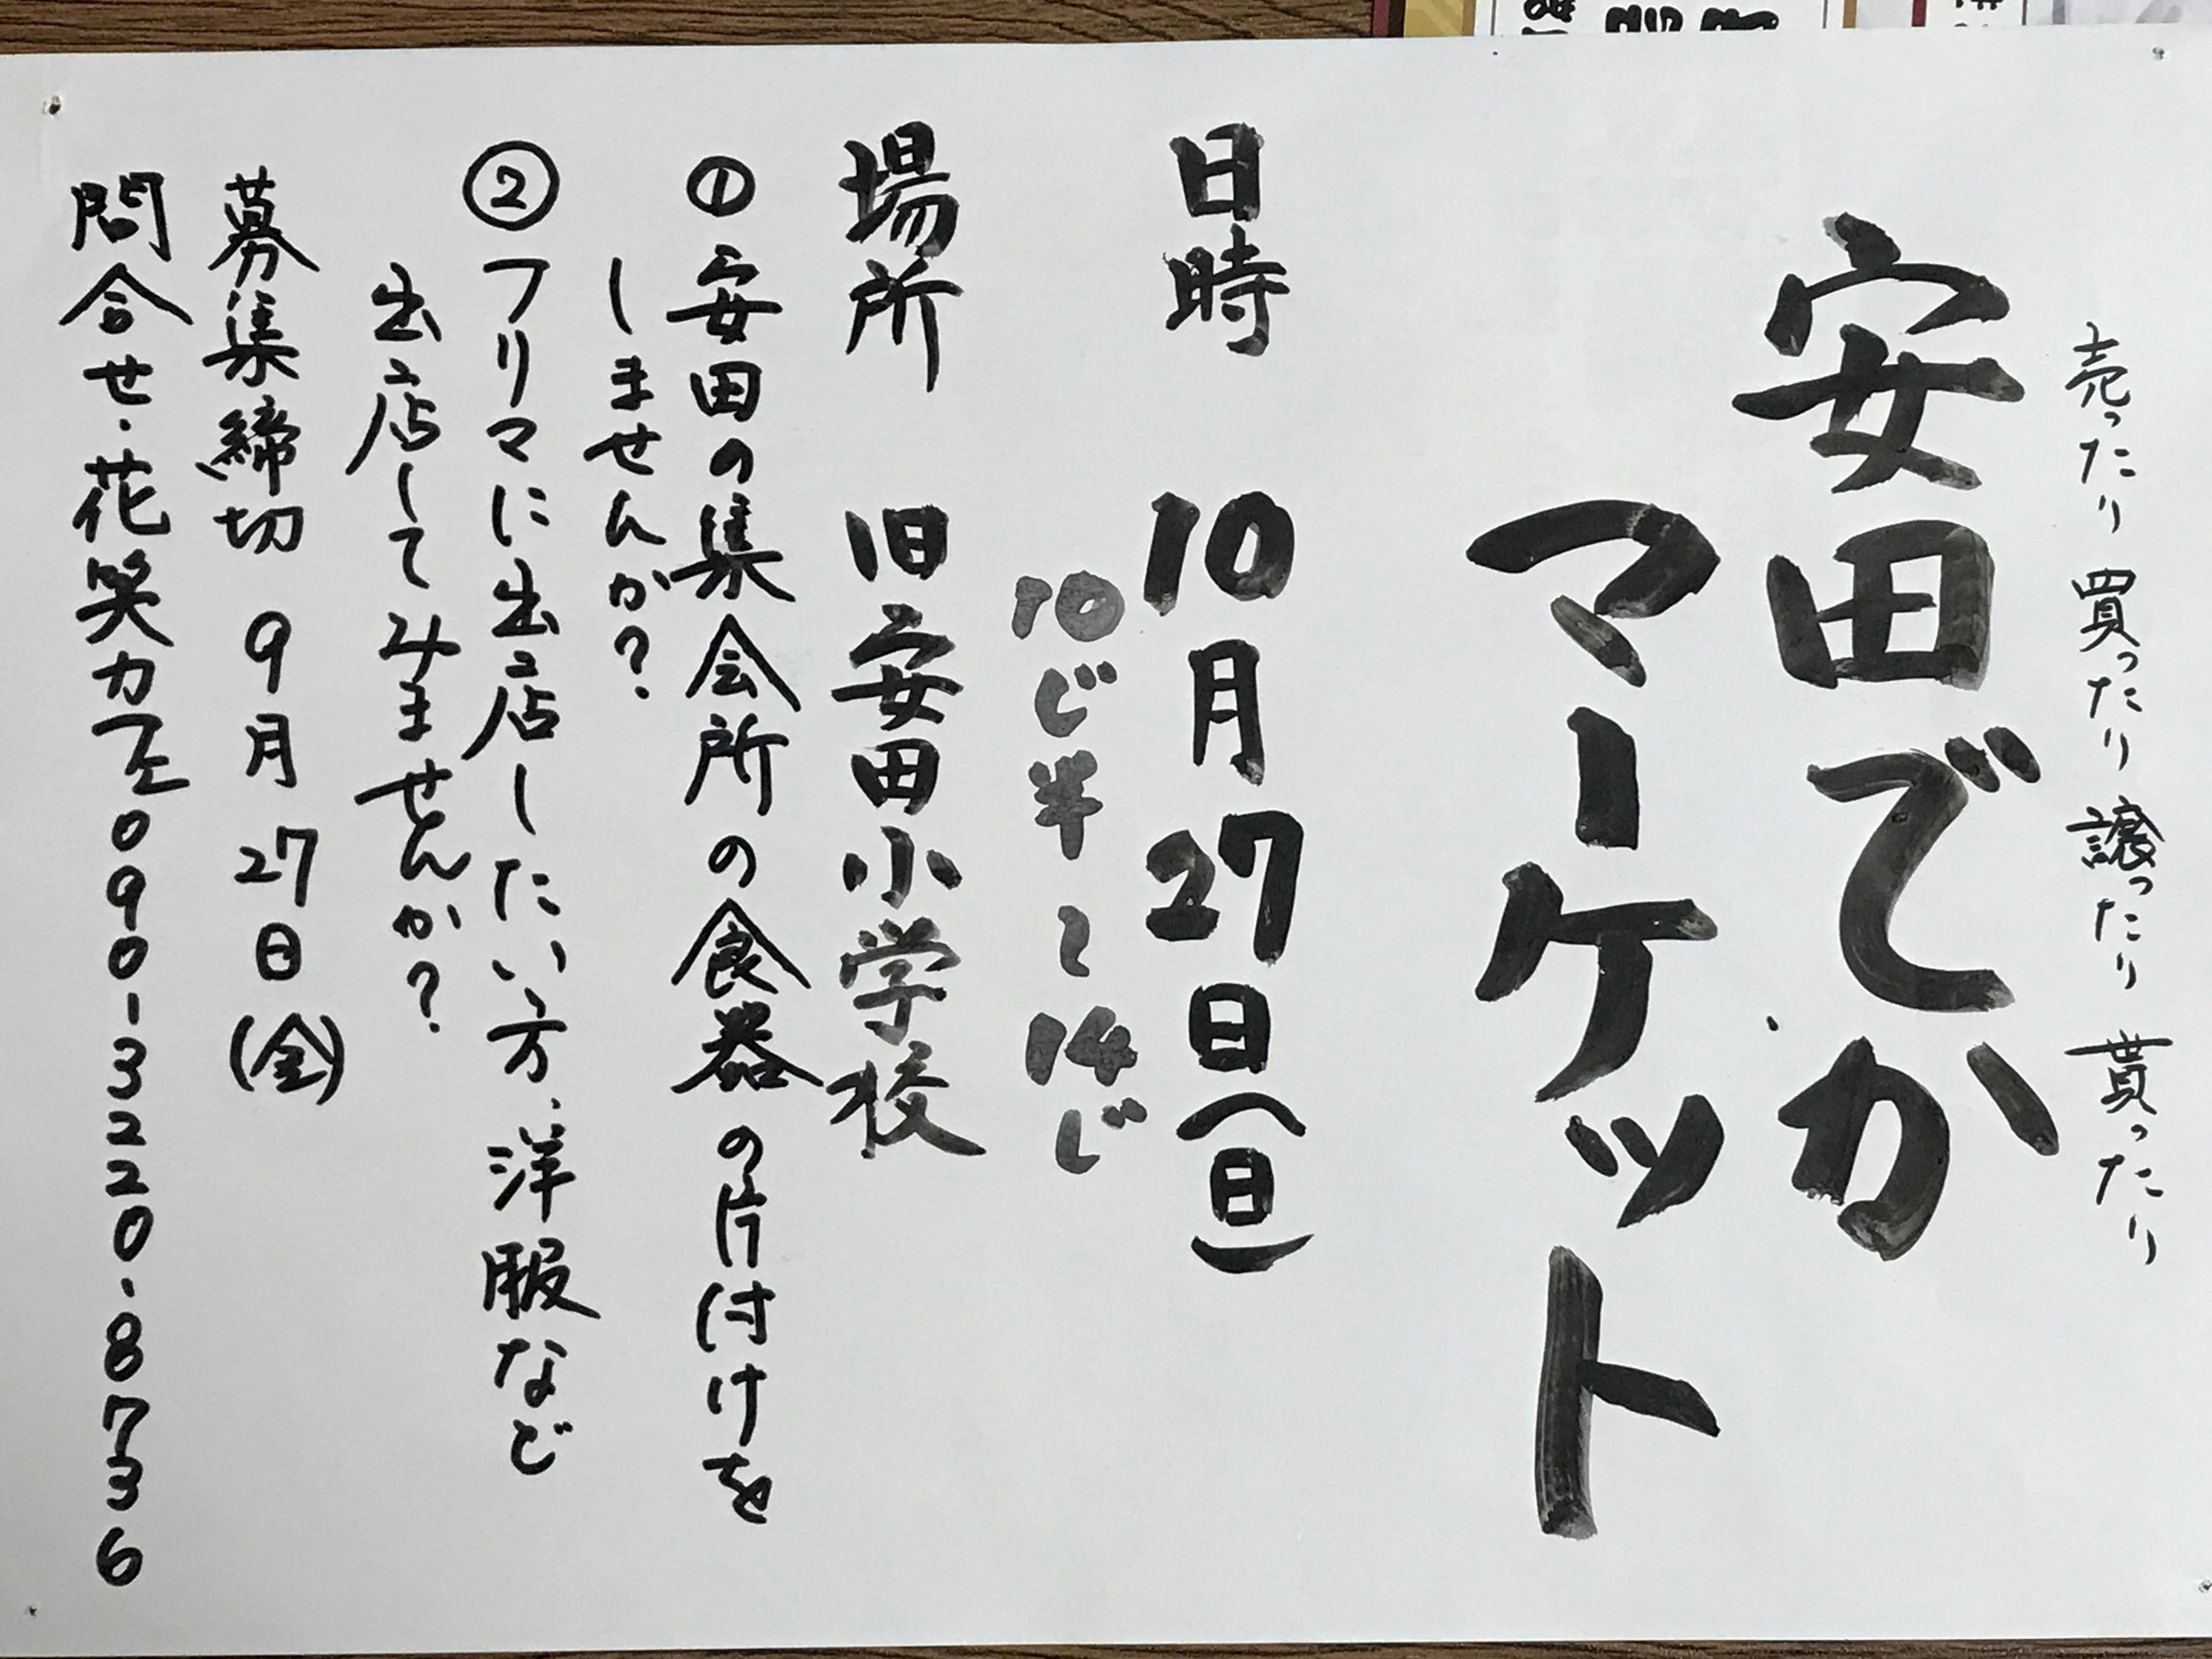 売ったり 買ったり 譲ったり 貰ったり
安田でか
マーケット
日時 10月27日(日)
10じ半~14じ
場所 旧安田小学校
① 安田の集会所の食器の片付けを
しませんか?
② フリマに出店したい方、洋服など
出店してみませんか?
募集締切 9月27日(金)
問合せ・花笑カフェ 090-3220-8736